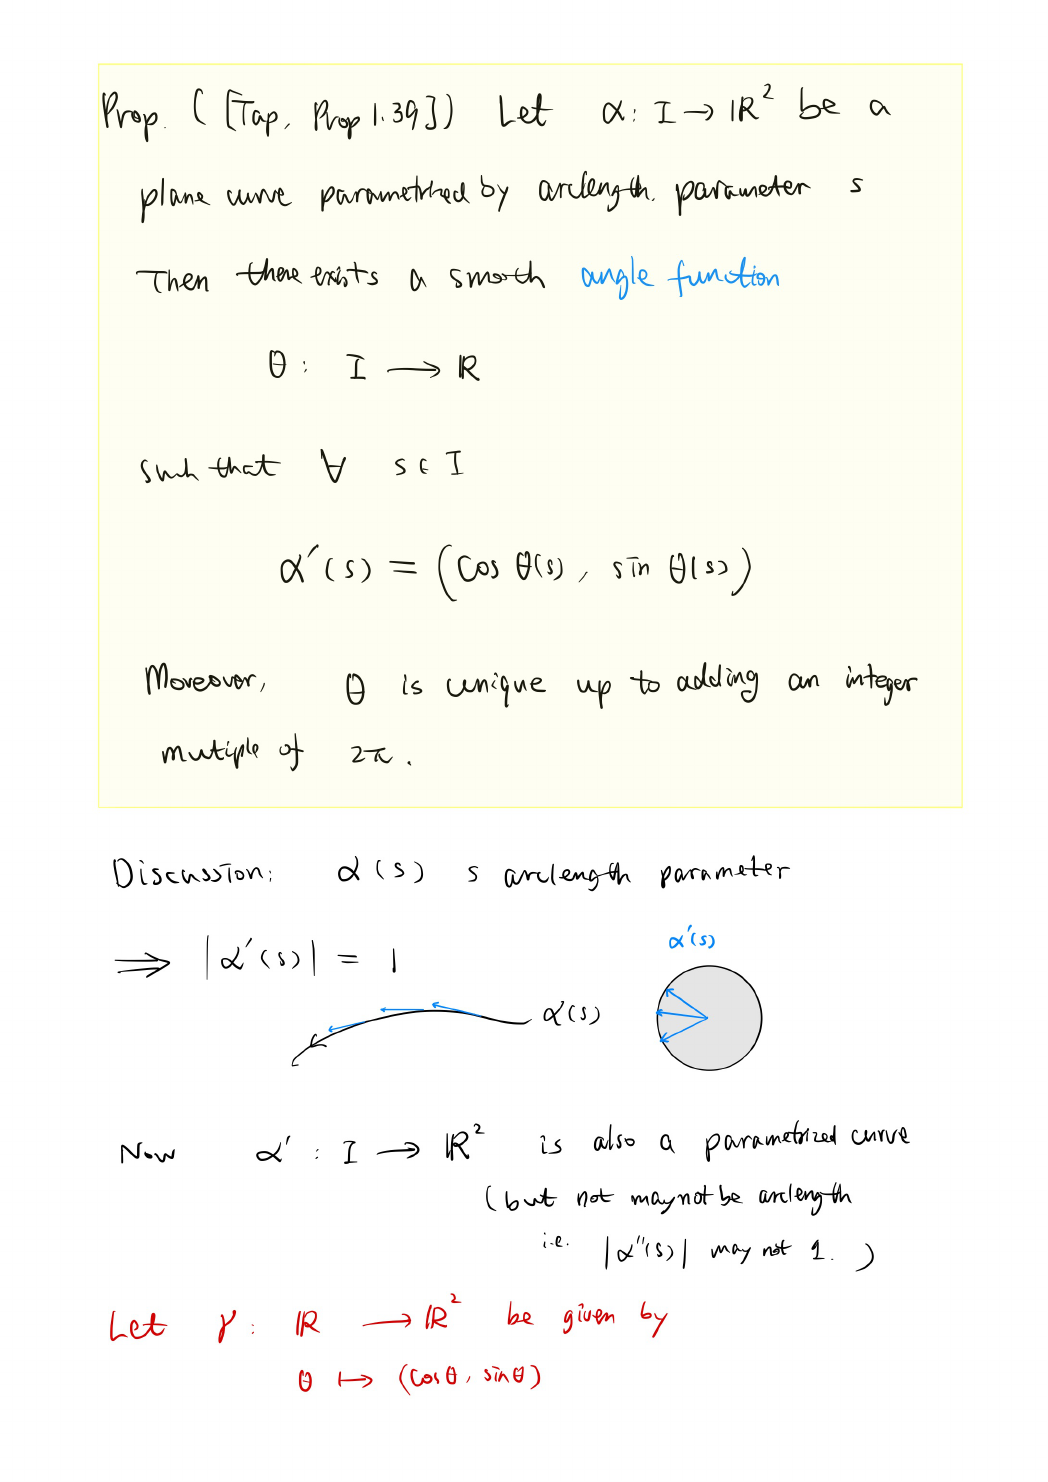 Prop. ( [Tap, Prop 1.39]) Let α: I → ℝ² be a
plane curve parametrized by arclength. parameter s
Then there exists a smooth angle function
θ : I → ℝ
such that ∀ s ∈ I
α′(s) = (cos θ(s), sin θ(s))
Moreover, θ is unique up to adding an integer
mutiple of 2π.
Discussion: α(s) s arclength parameter
⟹ |α′(s)| = 1
α′(s)
α(s)
Now α′ : I → ℝ² is also a parametrized curve
(but not may not be arclength
i.e. |α″(s)| may not 1. )
Let γ : ℝ → ℝ² be given by
θ ↦ (cosθ, sinθ)